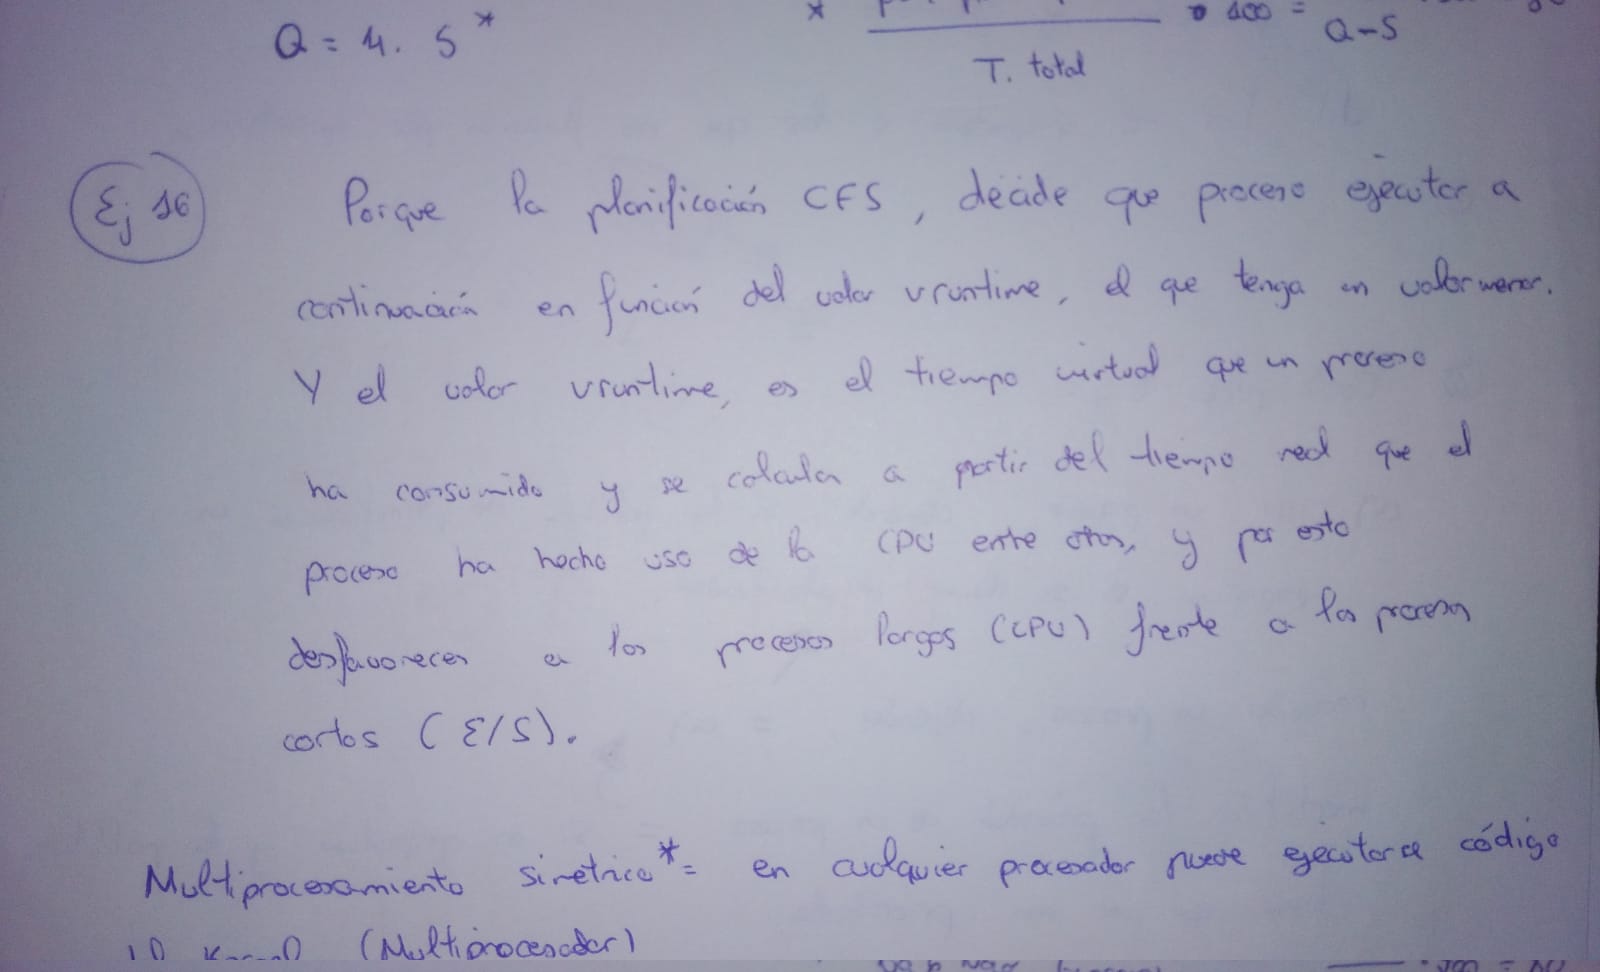 Q = 4. S*
* • 100 =
Q-S
T. total
Ej 16
Porque la planificación CFS, decide que proceso ejecutar a
continuación en función del valor vruntime, el que tenga un valor menor.
Y el valor vruntime, es el tiempo virtual que un proceso
ha consumido y se calcula a partir del tiempo real que el
proceso ha hecho uso de la CPU entre otros, y por esto
desfavorecen a los procesos largos (CPU) frente a los procesos
cortos (E/S).
Multiprocesamiento simétrico* = en cualquier procesador puede ejecutarse código
Kernel (Multiprocesador)